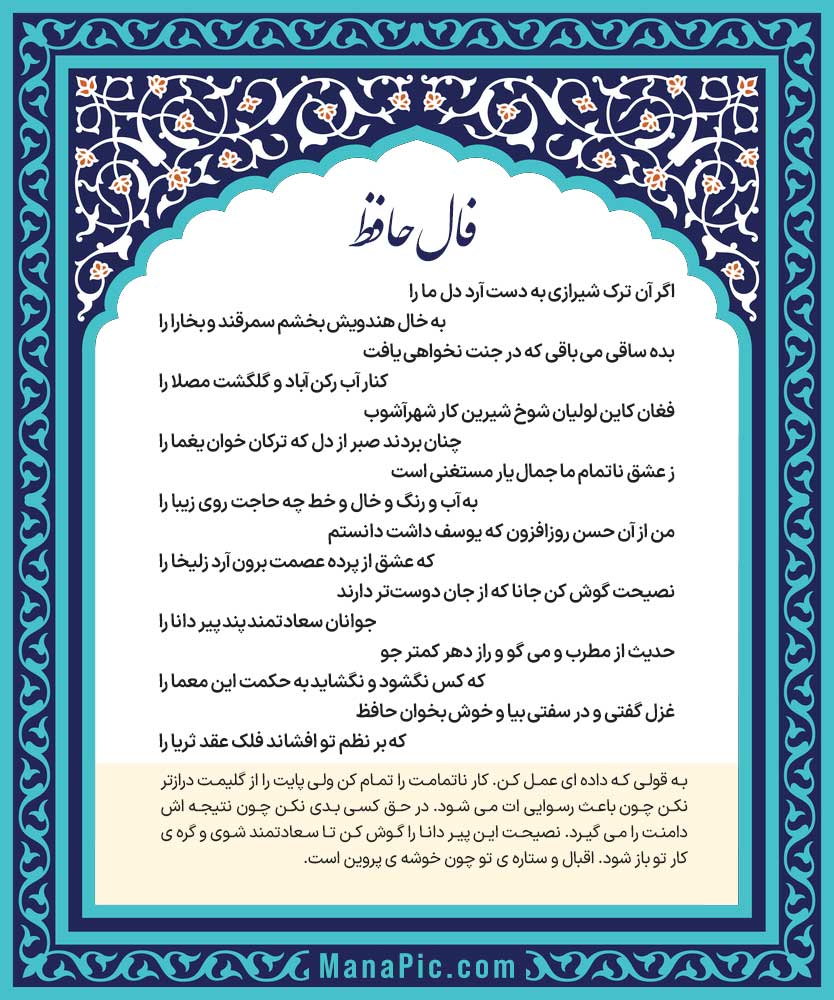 فال حافظ
اگر آن ترک شیرازی به دست آرد دل ما را
به خال هندویش بخشم سمرقند و بخارا را
بده ساقی می باقی که در جنت نخواهی یافت
کنار آب رکن آباد و گلگشت مصلا را
فغان کاین لولیان شوخ شیرین کار شهرآشوب
چنان بردند صبر از دل که ترکان خوان یغما را
ز عشق ناتمام ما جمال یار مستغنی است
به آب و رنگ و خال و خط چه حاجت روی زیبا را
من از آن حسن روزافزون که یوسف داشت دانستم
که عشق از پرده عصمت برون آرد زلیخا را
نصیحت گوش کن جانا که از جان دوست‌تر دارند
جوانان سعادتمند پند پیر دانا را
حدیث از مطرب و می گو و راز دهر کمتر جو
که کس نگشود و نگشاید به حکمت این معما را
غزل گفتی و در سفتی بیا و خوش بخوان حافظ
که بر نظم تو افشاند فلک عقد ثریا را
به قولی که داده ای عمل کن. کار ناتمامت را تمام کن ولی پایت را از گلیمت درازتر
نکن چون باعث رسوایی ات می شود. در حق کسی بدی نکن چون نتیجه اش
دامنت را می گیرد. نصیحت این پیر دانا را گوش کن تا سعادتمند شوی و گره ی
کار تو باز شود. اقبال و ستاره ی تو چون خوشه ی پروین است.
ManaPic.com